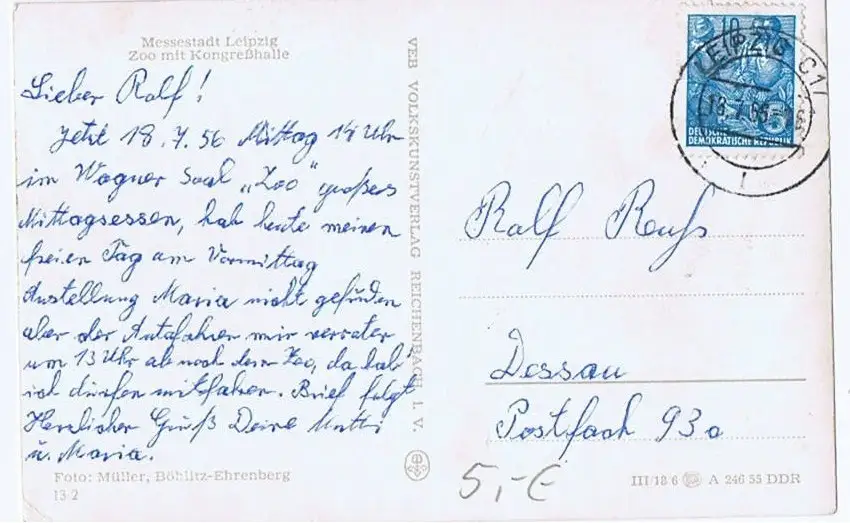 Messestadt Leipzig
Zoo mit Kongreßhalle
Lieber Ralf!
Jetzt 18.7.56 Mittag 14 Uhr
im Wagner Saal „Zoo" großes
Mittagsessen, hab heute meinen
freien Tag am Vormittag
Austellung Maria nicht gefunden
aber der Autofahrer mir verraten
um 13 Uhr ab nach dem Zoo, da hab'
ich dürfen mitfahren. Brief folgt
Herzlicher Gruß Deine Mutti
u. Maria.
Foto: Müller, Böhlitz-Ehrenberg
13 2
VEB VOLKSKUNSTVERLAG REICHENBACH I. V.
10
DEUTSCHE
DEMOKRATISCHE REPUBLIK
LEIPZIG C1
Ralf
Dessau
Postfach 93a
5,-€
III/18 6 A 246 55 DDR